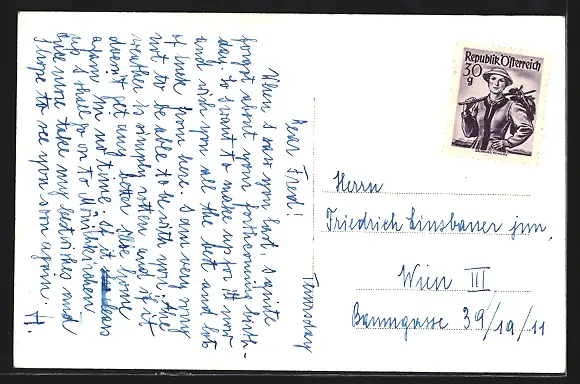 Dear Fred!
Thursday
When I saw you last, I quite
forgot about your forthcoming birth-
day. So I want to make up for it now
and wish you all the best and lots
of luck from here. I am very sorry
not to be able to be with you. The
weather is simply rotten and if it
doesn't get any better I'll be home
again in no time. If it clears
up I shall go on to Mönichkirchen
Once more take my best wishes and
I hope to see you soon again. H.
Republik Österreich
30
g
Herrn
Friedrich Linsbauer jun.
Wien III
Baumgasse 39/19/11